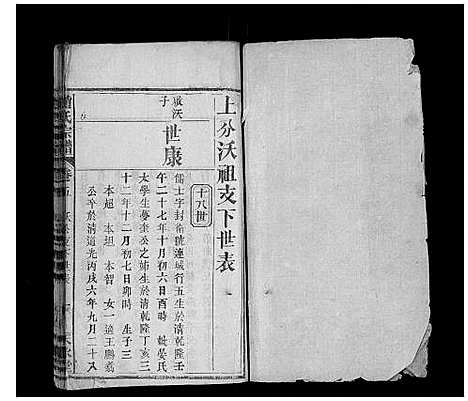 上分沃祖支下世表
十八世
啟沃
子
世康
儒士字封衛號連城行五生於清乾隆壬
午二十七年十月初六日酉時 娶晏氏
太學生夢奎公之姊生於清乾隆丁亥三
十二年十二月初七日卯時 生子三
本超 本坦 本智 女一適王鵬嵩
公卒於清道光丙戌六年九月二十八
氏宗譜